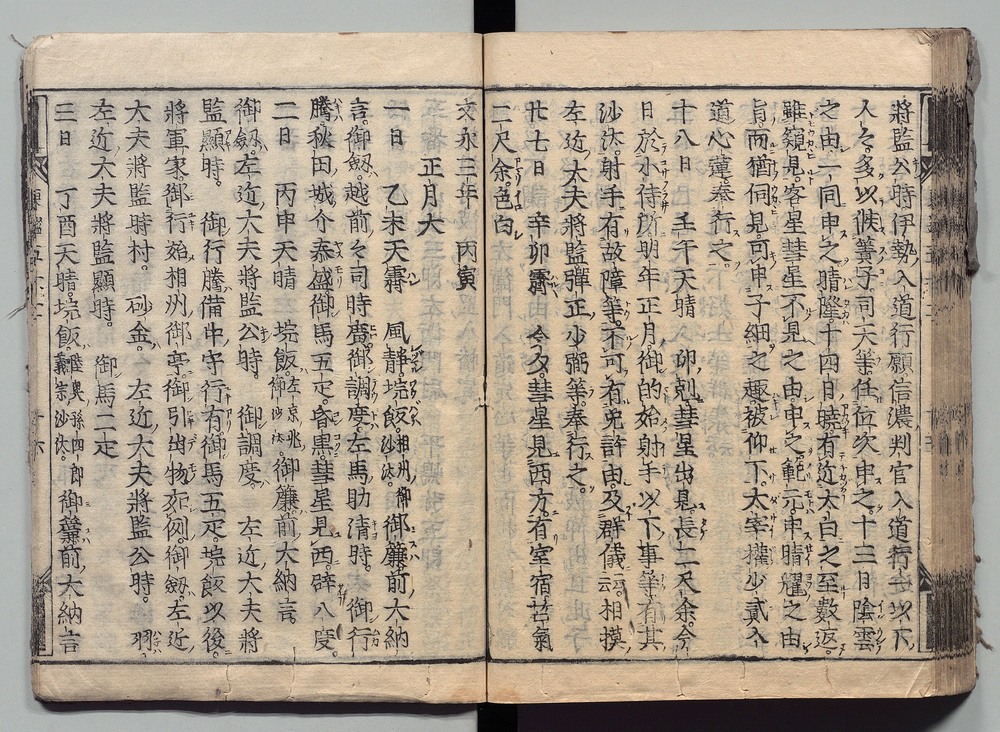 將監公時伊勢入道行願信濃判官入道行一以下
人々多以候簀子司天等任位次申之十三日陰雲
之由一同申之晴隆十四日曉有近太白之至數返。
雖窺見。客星彗星不見之由申之。範元申晴耀之由
旨而猶伺見可申子細之趣被仰下。太宰權少貳入
道心蓮奉行之。
十八日 壬午天晴 卯剋彗星出見。長二尺余。今
日於小侍所明年正月御的始射手以下事等有其
沙汰射手有故障等。不可有免許由及群儀云。相摸
左近大夫將監彈正少弼等奉行之。
廿七日 辛卯霽 今夕。彗星見西方。有室宿
二尺余。色白
文永三年 丙寅
正月大
一日 乙未天霽 風靜垸飯相州御沙汰。御簾前。大納
言。御劔。越前々司時廣御調度左馬助清時。 御行
騰。秋田城介泰盛御馬五疋。昏黑彗星見西。 八度。
二日 丙申天晴 垸飯左京兆御沙汰。御簾前大納言。
御劔。左近大夫將監公時。 御調度。 左近大夫將
監顯時。 御行騰備中守行有御馬五疋。垸飯以後。
將軍家御行始相州御亭。御引出物如例。御劔左近
大夫將監時村。 砂金。 左近大夫將監公時。 羽。
左近大夫將監顯時。 御馬二疋
三日 丁酉天晴。垸飯陸奧孫四郎義宗沙汰。御簾前。大納言